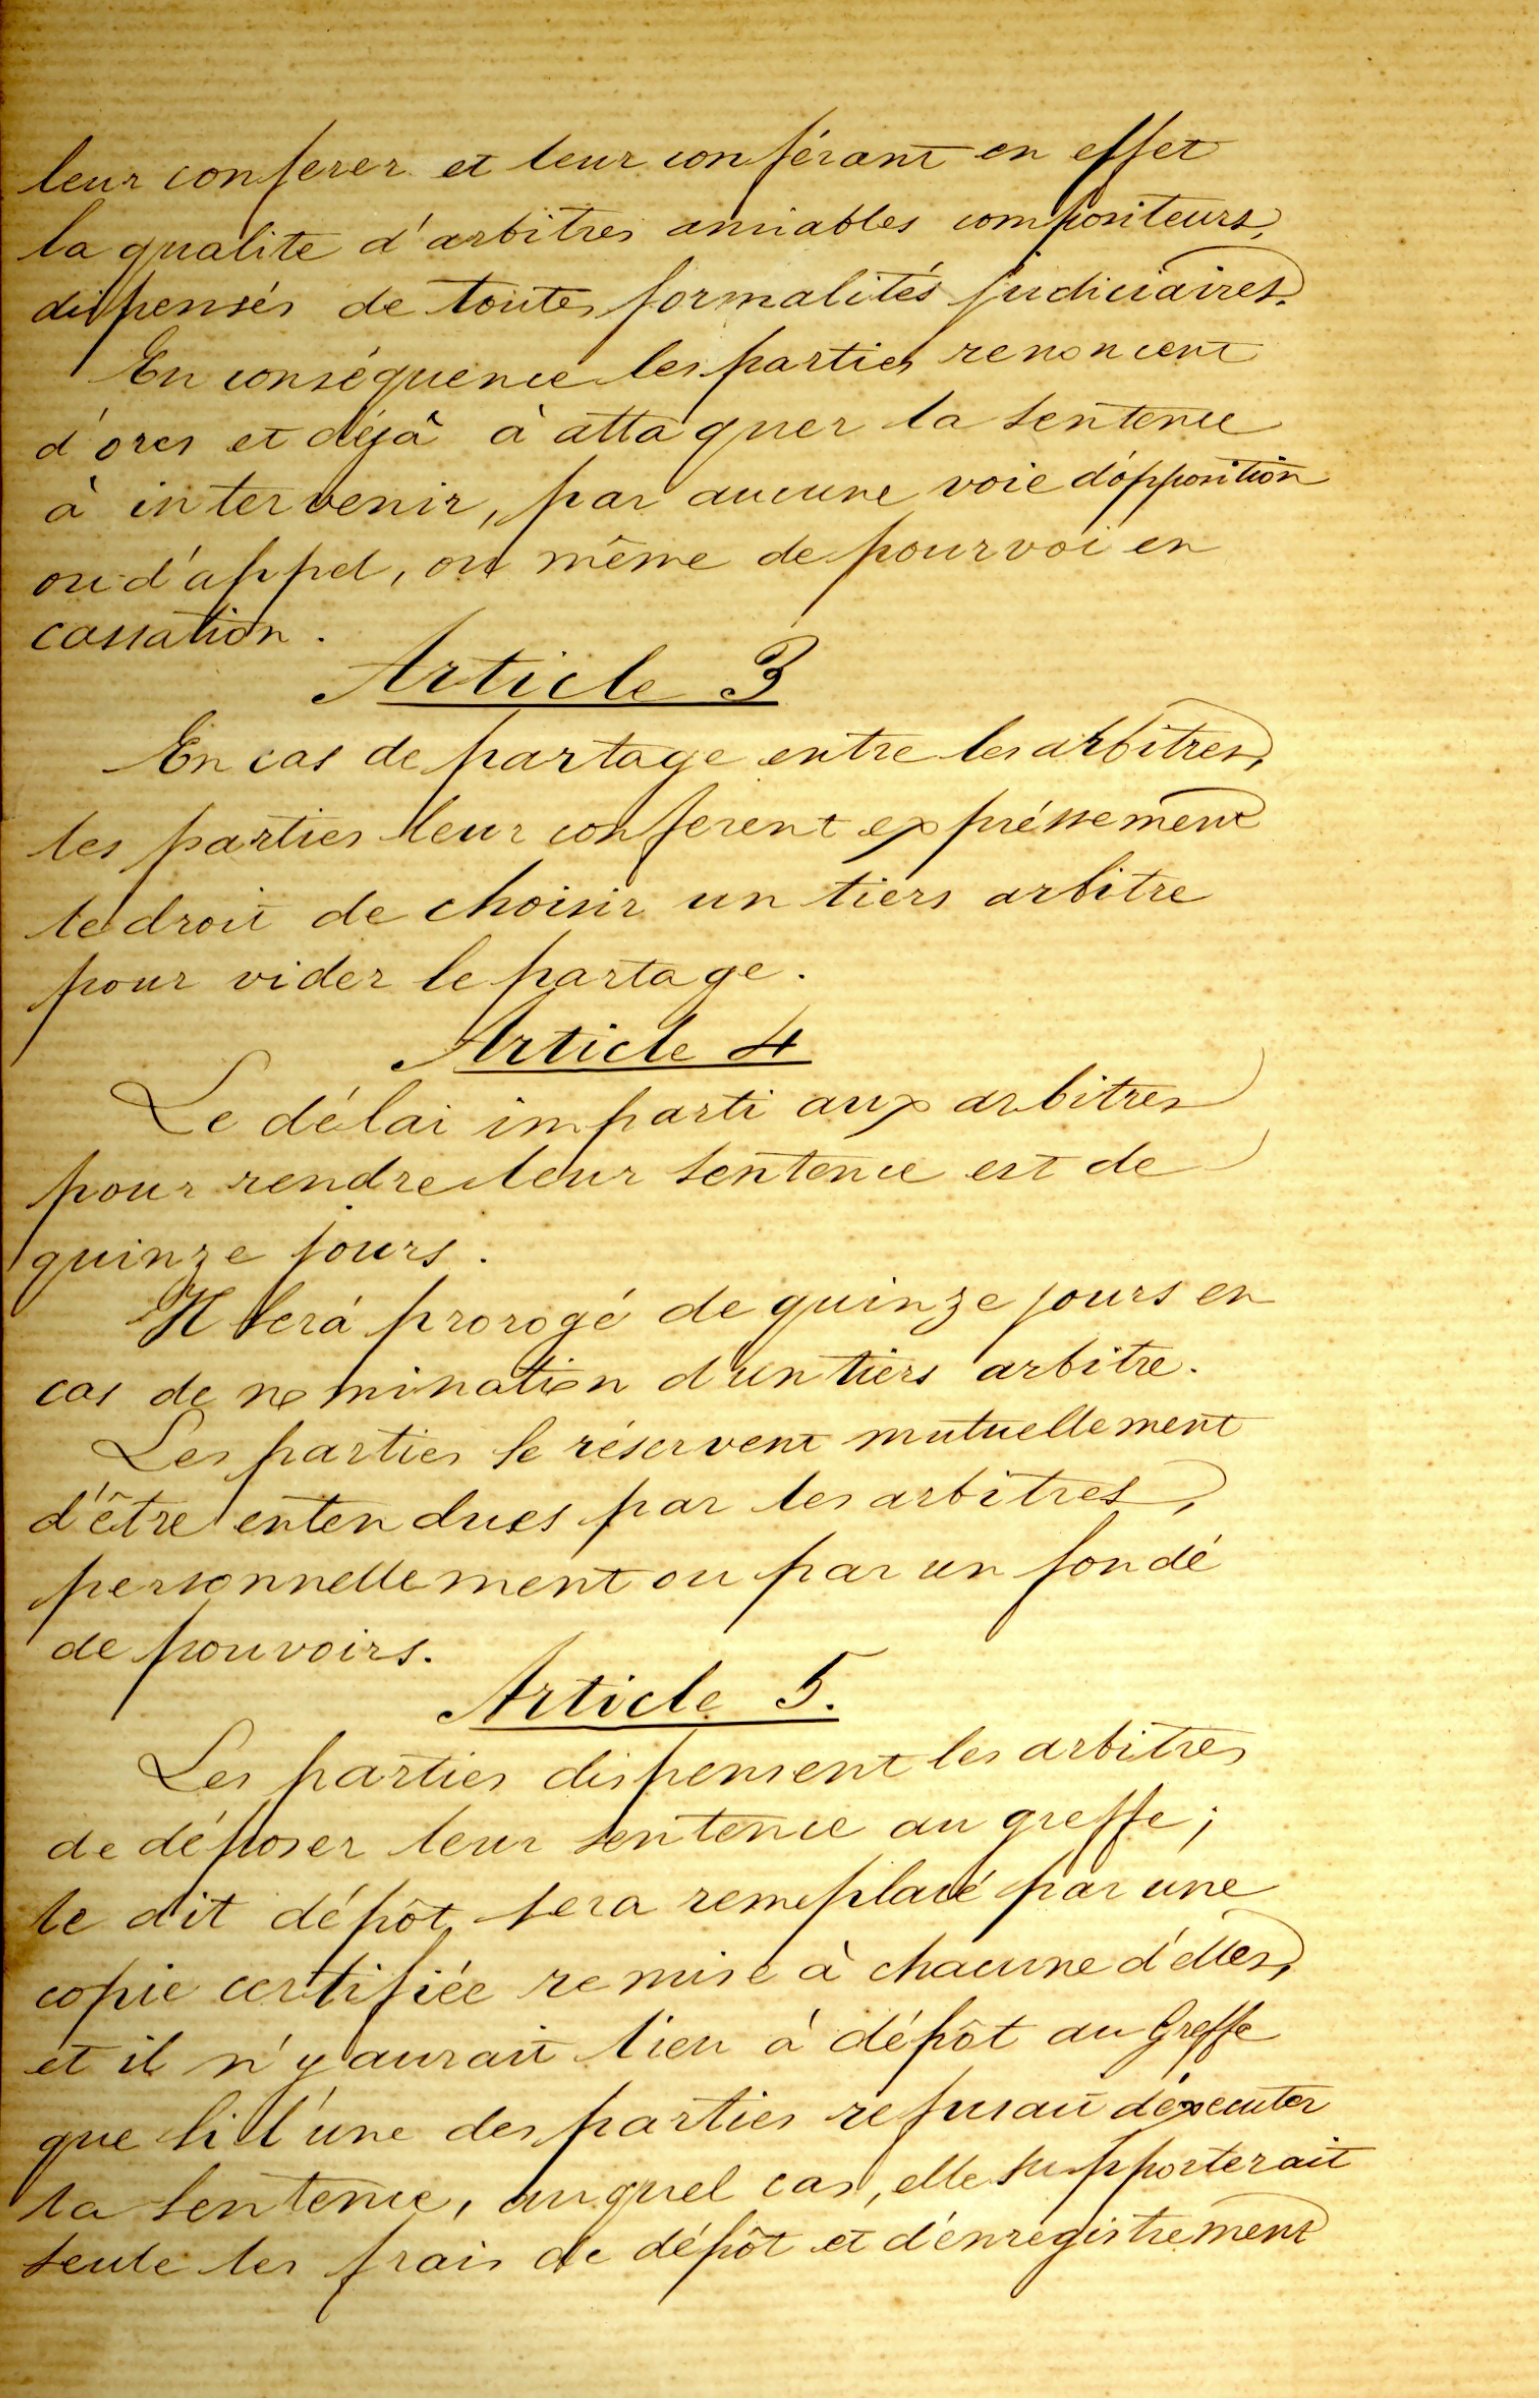 leur conferer et leur conférant en effet
la qualite d'arbitres amiables compositeurs,
dispensés de toutes formalités judiciaires.
En conséquence les parties renoncent
d'ores et déjà à attaquer la sentence
à intervenir, par aucune voie d'opposition
ou d'appel, ou même de pourvoi en
cassation.
Article 3
En cas de partage entre les arbitres,
les parties leur conferent expréssement
le droit de choisir un tiers arbitre
pour vider le partage.
Article 4
Le délai imparti aux arbitres
pour rendre leur sentence est de
quinze jours.
Il sera prorogé de quinze jours en
cas de nomination d'un tiers arbitre.
Les parties se réservent mutuellement
d'être entendues par les arbitres,
personnellement ou par un fondé
de pouvoirs.
Article 5.
Les parties dispensent les arbitres
de déposer leur sentence au greffe;
le dit dépôt sera remplacé par une
copie certifiée remise à chacune d'elles,
et il n'y aurait lieu à dépôt au Greffe
que si l'une des parties refusait d'éxecuter
la sentence, auquel cas, elle supporterait
seule les frais de dépôt et d'enregistrement